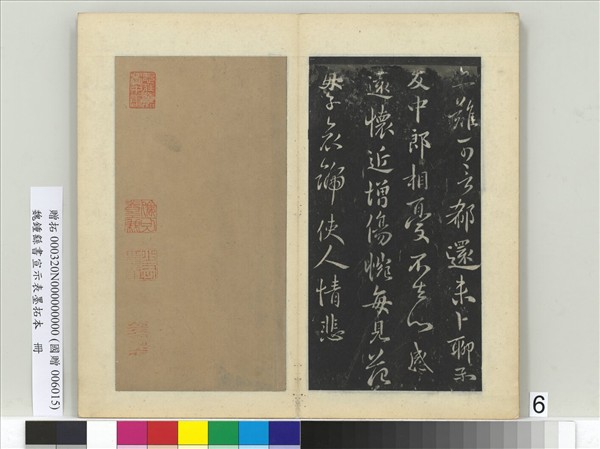 難可言都還未卜聊示
及中郎相憂不去心感
遠懷近增傷惋每見范
母子哀號使人情悲
贈拓 000320N000000000 (國贈 006015)
魏鍾繇書宣示表墨拓本 冊
6